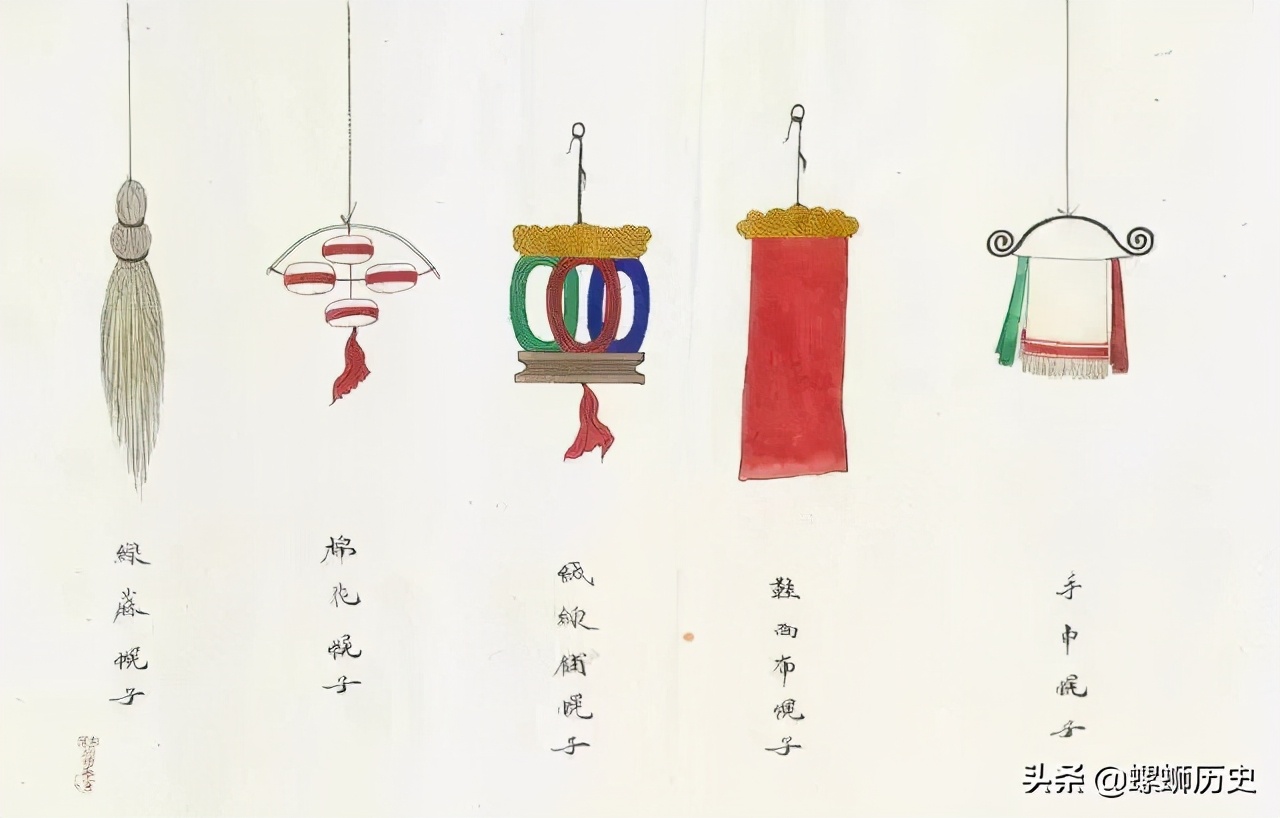 手巾幌子
鞋面布幌子
絨線舖幌子
棉花幌子
線蔴幌子
头条 @螺蛳历史